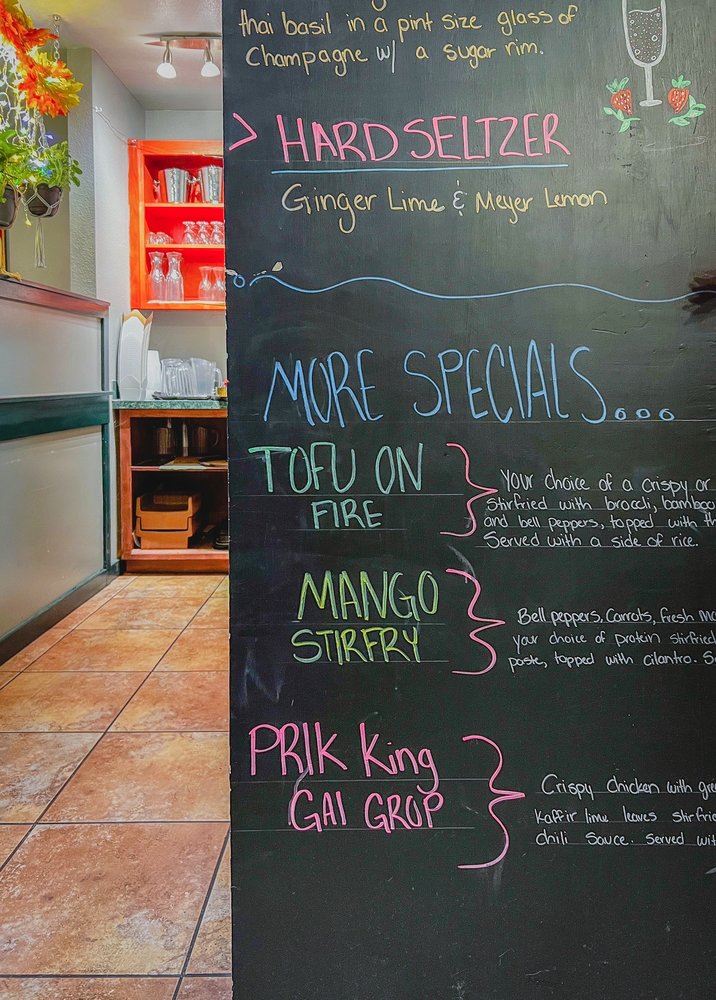 thai basil in a pint size glass of
Champagne w/ a sugar rim.
> HARD SELTZER
Ginger Lime & Meyer Lemon
MORE SPECIALS...
TOFU ON
FIRE
Your choice of a crispy or
Stirfried with brocoli, bamboo
and bell peppers, topped with
Served with a side of rice.
MANGO
STIRFRY
Bell peppers, Carrots, fresh
your choice of protein stirfried
paste, topped with cilantro.
PRIK King
GAI GROP
Crispy chicken with
Kaffir lime leaves stirfried
Chili Sauce. Served